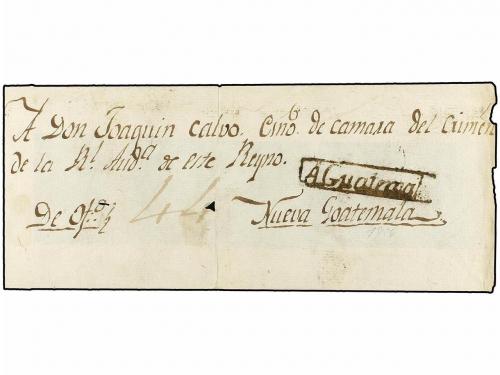 A Don Joaquin Calvo. Esno. de camara del Crimen
de la Rl. Auda. de este Reyno.
A Guatemal
De Ofo. 44 Nueva Goatemala